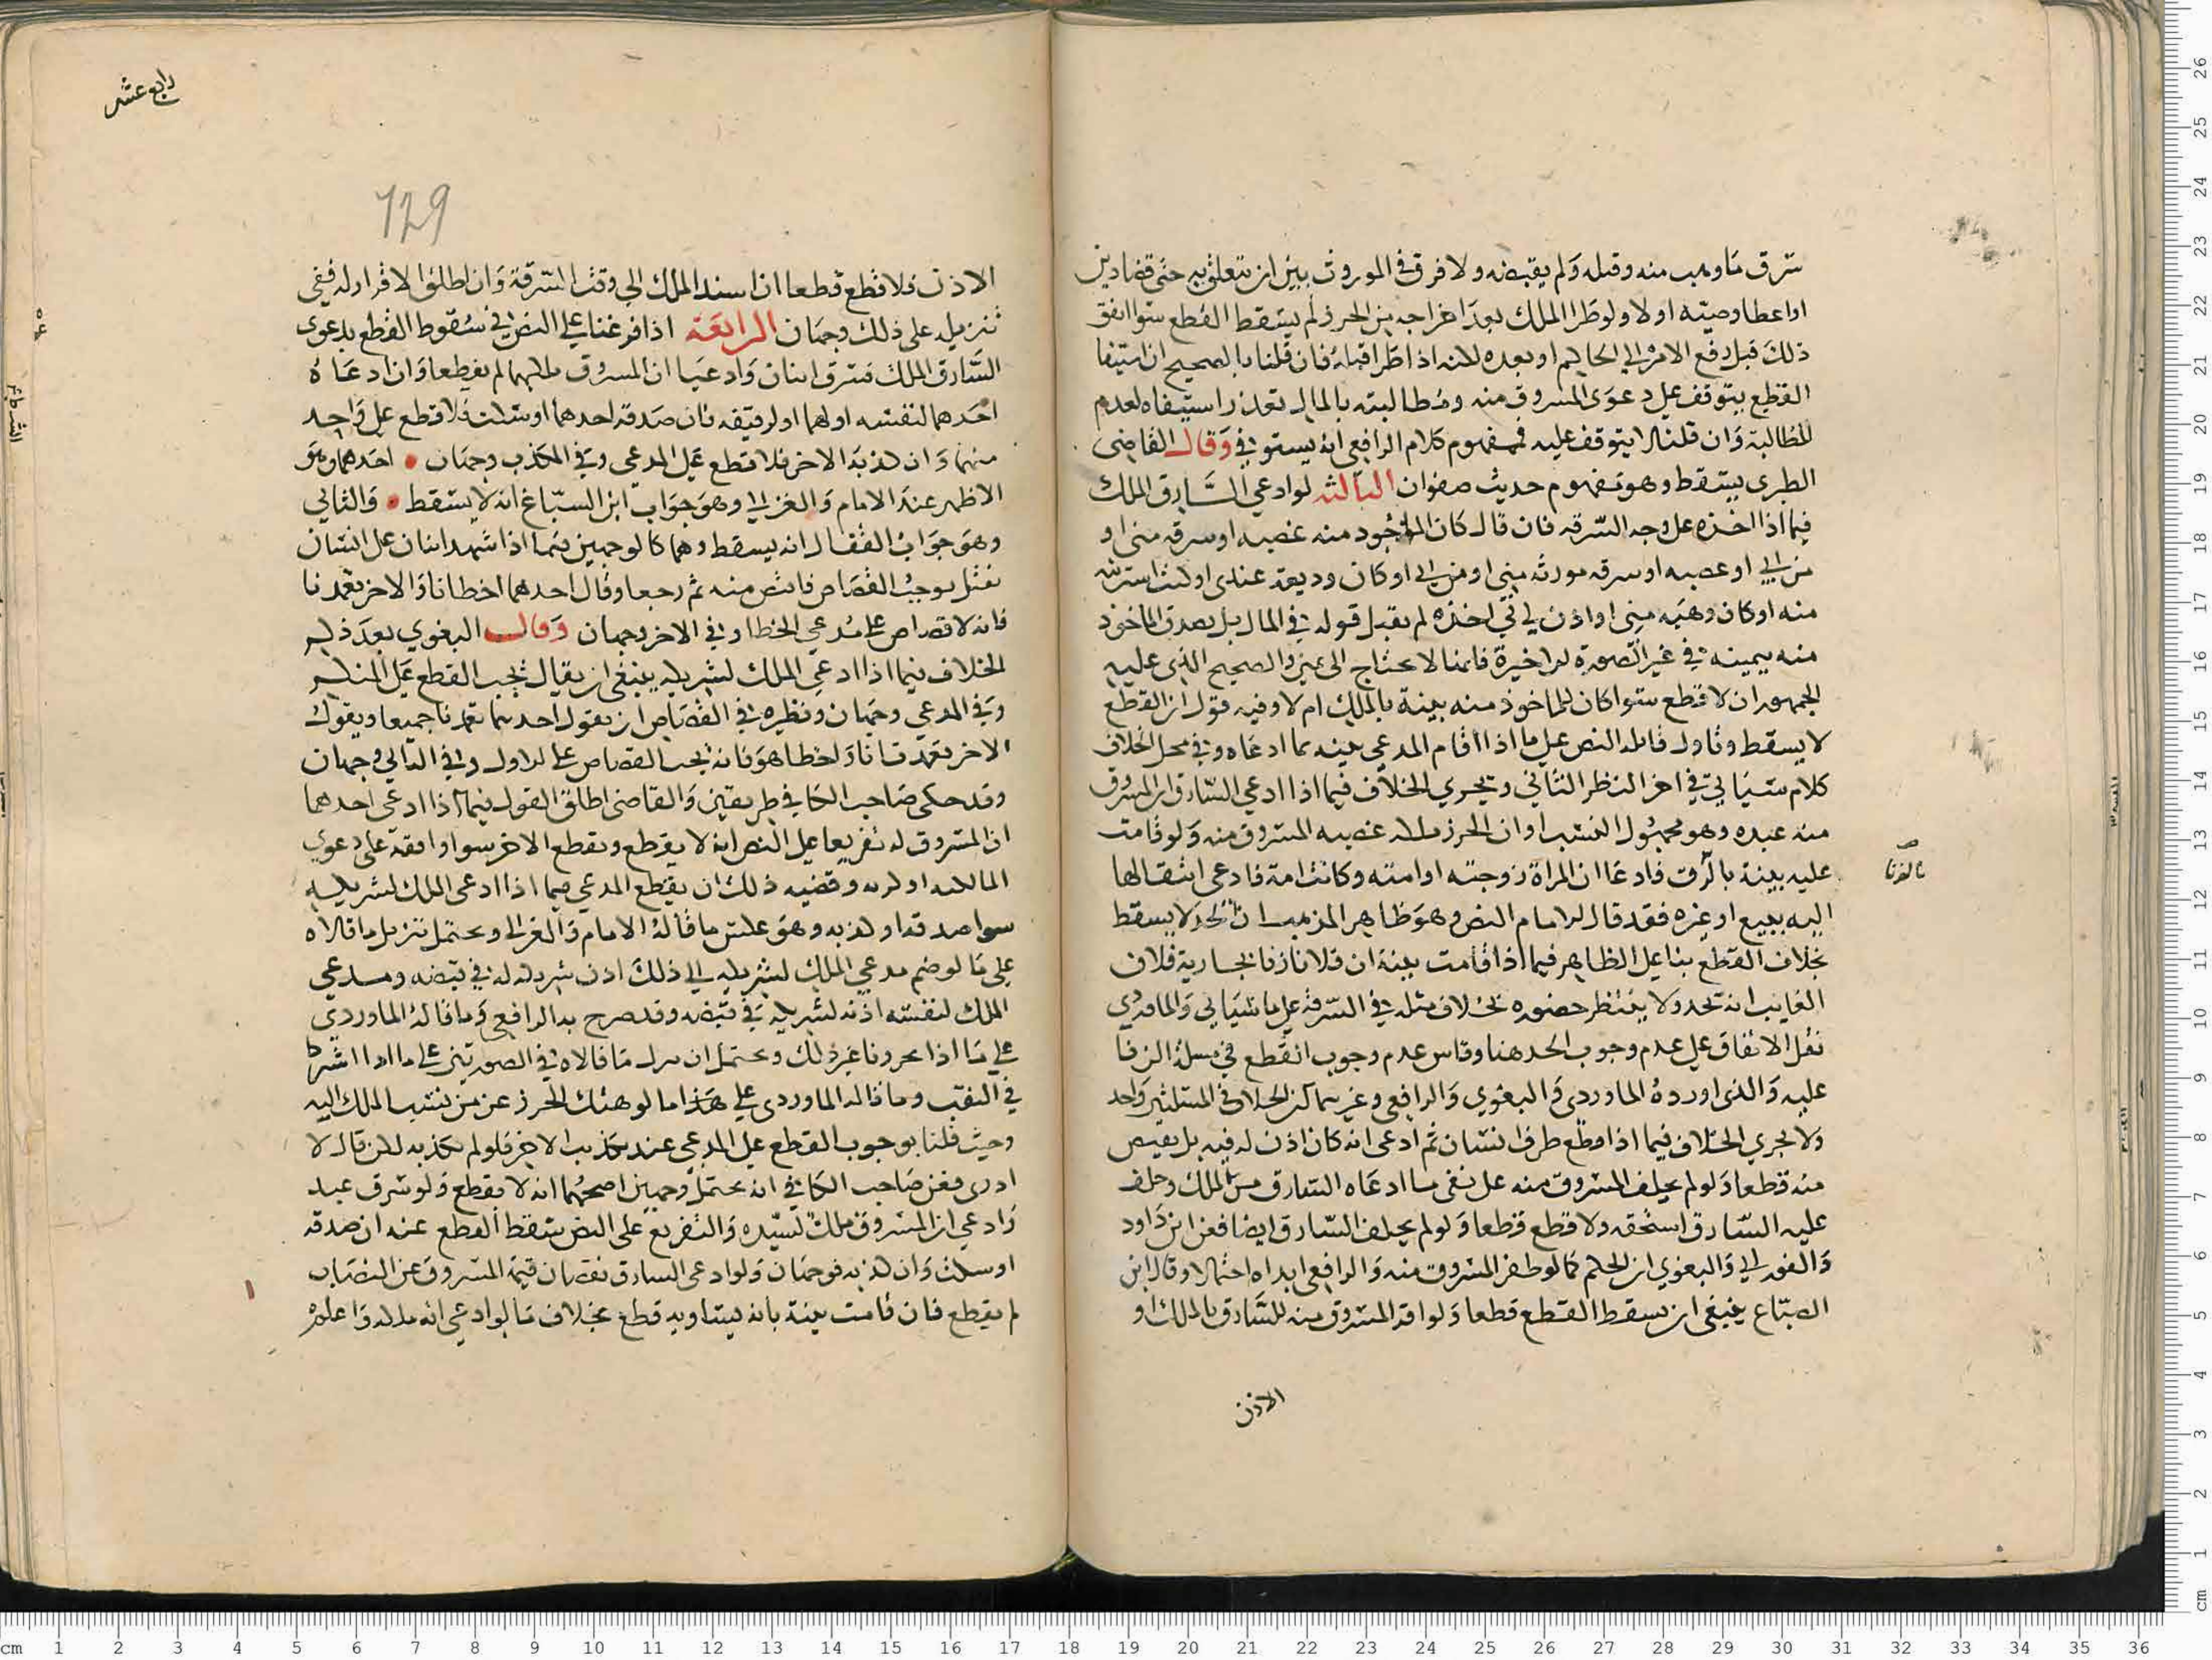 سرق ما وهب منه وقبله ولم يقبضه ولا فرق في الموروث بين ان يتعلق به حتى قضا دين
او اعطا وصيته او لا ولو طرا الملك بعد اخراجه من الحرز لم يسقط القطع سوا اتفق
ذلك قبل رفع الامر الى الحاكم او بعده لكنه اذا طرا قبله فان قلنا بالصحيح ان استيفا
القطع يتوقف على دعوى المسروق منه ومطالبته بالمال تعذر استيفاه لعدم
المطالبة وان قلنا لا يتوقف عليه فمفهوم كلام الرافعي انه يستوفي وقال القاضي
الطبري يسقط وهو مفهوم حديث صفوان الثالثة لو ادعى السارق الملك
فيما اذا اخذه على وجه السرقة فان قال كان الماخوذ منه غصبه او سرقه مني او
من ابي او غصبه او سرقه مورثه مني او من ابي او كان وديعة عندي او كنت استريته
منه او كان وهبه مني او اذن لي في اخذه لم يقبل قوله في المال بل يصدق الماخوذ
منه بيمينه في غير الصورة الاخيرة فانها لا تحتاج الى يمين والصحيح الذي عليه
الجمهور ان لا قطع سوا كان للماخوذ منه بينة بالملك ام لا وفيه قول ان القطع
لا يسقط وتاول قايله النص على ما اذا اقام المدعي بينه بما ادعاه وفي محل الخلاف
كلام سياتي في اخر النظر الثاني ويجري الخلاف فيما اذا ادعى السارق ان المسروق
منه عبده وهو مجهول النسب او ان الحرز ملكه غصبه المسروق منه ولو قامت
بالزنا
عليه بينة بالزنى فادعا ان المراة زوجته او امته وكانت امة فادعى انتقالها
اليه ببيع او غيره فقد قال الامام النص وهو ظاهر المذهب ان الحد لا يسقط
بخلاف القطع بنا على الظاهر فيما اذا قامت بينة ان فلانا زنا بجارية فلان
الغايب انه يحد ولا ينتظر حضوره بخلاف مثله في السرقة على ما سياتي والماوردي
نقل الاتفاق على عدم وجوب الحد هنا وقاس عدم وجوب القطع في مسلة الزنا
عليه والذي اورده الماوردي والبغوي والرافعي وغيرهما ان الخلاف في المسئلتين واحد
ولا يجري الخلاف فيما اذا قطع طرف انسان ثم ادعى انه كان اذن له فيه بل يقتص
منه قطعا ولو لم يحلف المسروق منه على نفي ما ادعاه السارق من الملك وحلف
عليه السارق استحقه ولا قطع قطعا ولو لم يحلف السارق ايضا فعن ابن داود
والفوراني والبغوي ان الحكم كما لو ظفر المسروق منه والرافعي ابداه احتمالا وقال ابن
الصباغ ينبغي ان يسقط القطع قطعا ولو اقر المسروق منه للسارق بالملك او
الاذن
رابع عشر
729
الاذن فلا قطع قطعا ان اسند الملك الى وقت السرقة وان اطلق الاقرار له ففي
تنزيله على ذلك وجهان الرابعة اذا فرعنا على النص في سقوط القطع بدعوى
السارق الملك فسرق اثنان وادعيا ان المسروق ملكهما لم يقطعا وان ادعاه
احدهما لنفسه او لهما او لرفيقه فان صدقه احدهما او سكت فلا قطع على واحد
منهما وان كذبه الاخر فلا قطع على المدعي وفي المكذب وجهان احدهما وهو
الاظهر عند الامام والغزالي وهو جواب ابن السباغ انه لا يسقط والثاني
وهو جواب القفال انه يسقط وهما كالوجهين فيما اذا شهد اثنان على انسان
بقتل يوجب القصاص فاقتص منه ثم رجعا وقال احدهما اخطانا والاخر تعمدنا
فانه لا قصاص على مدعي الخطا وفي الاخر وجهان وقال البغوي بعد ذكر
الخلاف فيما اذا ادعى الملك لشريكه ينبغي ان يقال يجب القطع على المنكر
وفي المدعي وجهان ونظيره في القصاص ان يقول احدهما تعمدنا جميعا ويقول
الاخر تعمدت انا واخطا هو فانه يجب القصاص على الاول وفي الثاني وجهان
وقد حكى صاحب الكافي طريقين والقاضي اطلق القول فيما اذا ادعى احدهما
ان المسروق له تفريعا على النص انه لا يقطع ويقطع الاخر سوا وافقه على دعوى
المالكيه او لريه وقضيه ذلك ان يقطع المدعي فيما اذا ادعى الملك لشريكه
سوا صدقه او كذبه وهو عكس ما قاله الامام والغزالي ويحتمل تنزيل ما قالاه
على ما لو ضم مدعي الملك لشريكه الى ذلك اذن شريكه له في قبضه ومدعي
الملك لنفسه اذنه لشريكه في قبضه وقد صرح به الرافعي وما قاله الماوردي
على ما اذا جردنا غير ذلك ويحتمل ان ما قالاه في الصورتين على ما اذا اشتركا
في النقب وما قاله الماوردي على هذا ما لو هتك الحرز عن من ينسب الملك اليه
وحيث قلنا بوجوب القطع على المدعي عند تكذيب الاخر فلو لم يكذبه لكن قال لا
ادري فعن صاحب الكافي انه يحتمل وجهين اصحهما انه لا يقطع ولو سرق عبد
وادعى ان المسروق ملك لسيده والتفريع على النص سقط القطع عنه ان صدقه
او سكت وان كذبه فوجهان ولو ادعى السارق نقصان قيمة المسروق عن النصاب
لم يقطع فان قامت بينة بانه يساويه قطع بخلاف ما لو ادعى انه ملكه واعلم